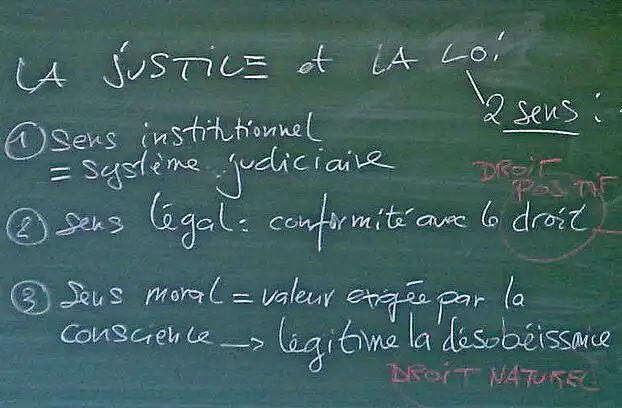 LA JUSTICE et LA LOI
2 sens :
① Sens institutionnel
= système judiciaire
DROIT
POSITIF
② Sens légal : conformité avec le droit
③ Sens moral = valeur exigée par la
conscience → légitime la désobéissance
DROIT NATUREL